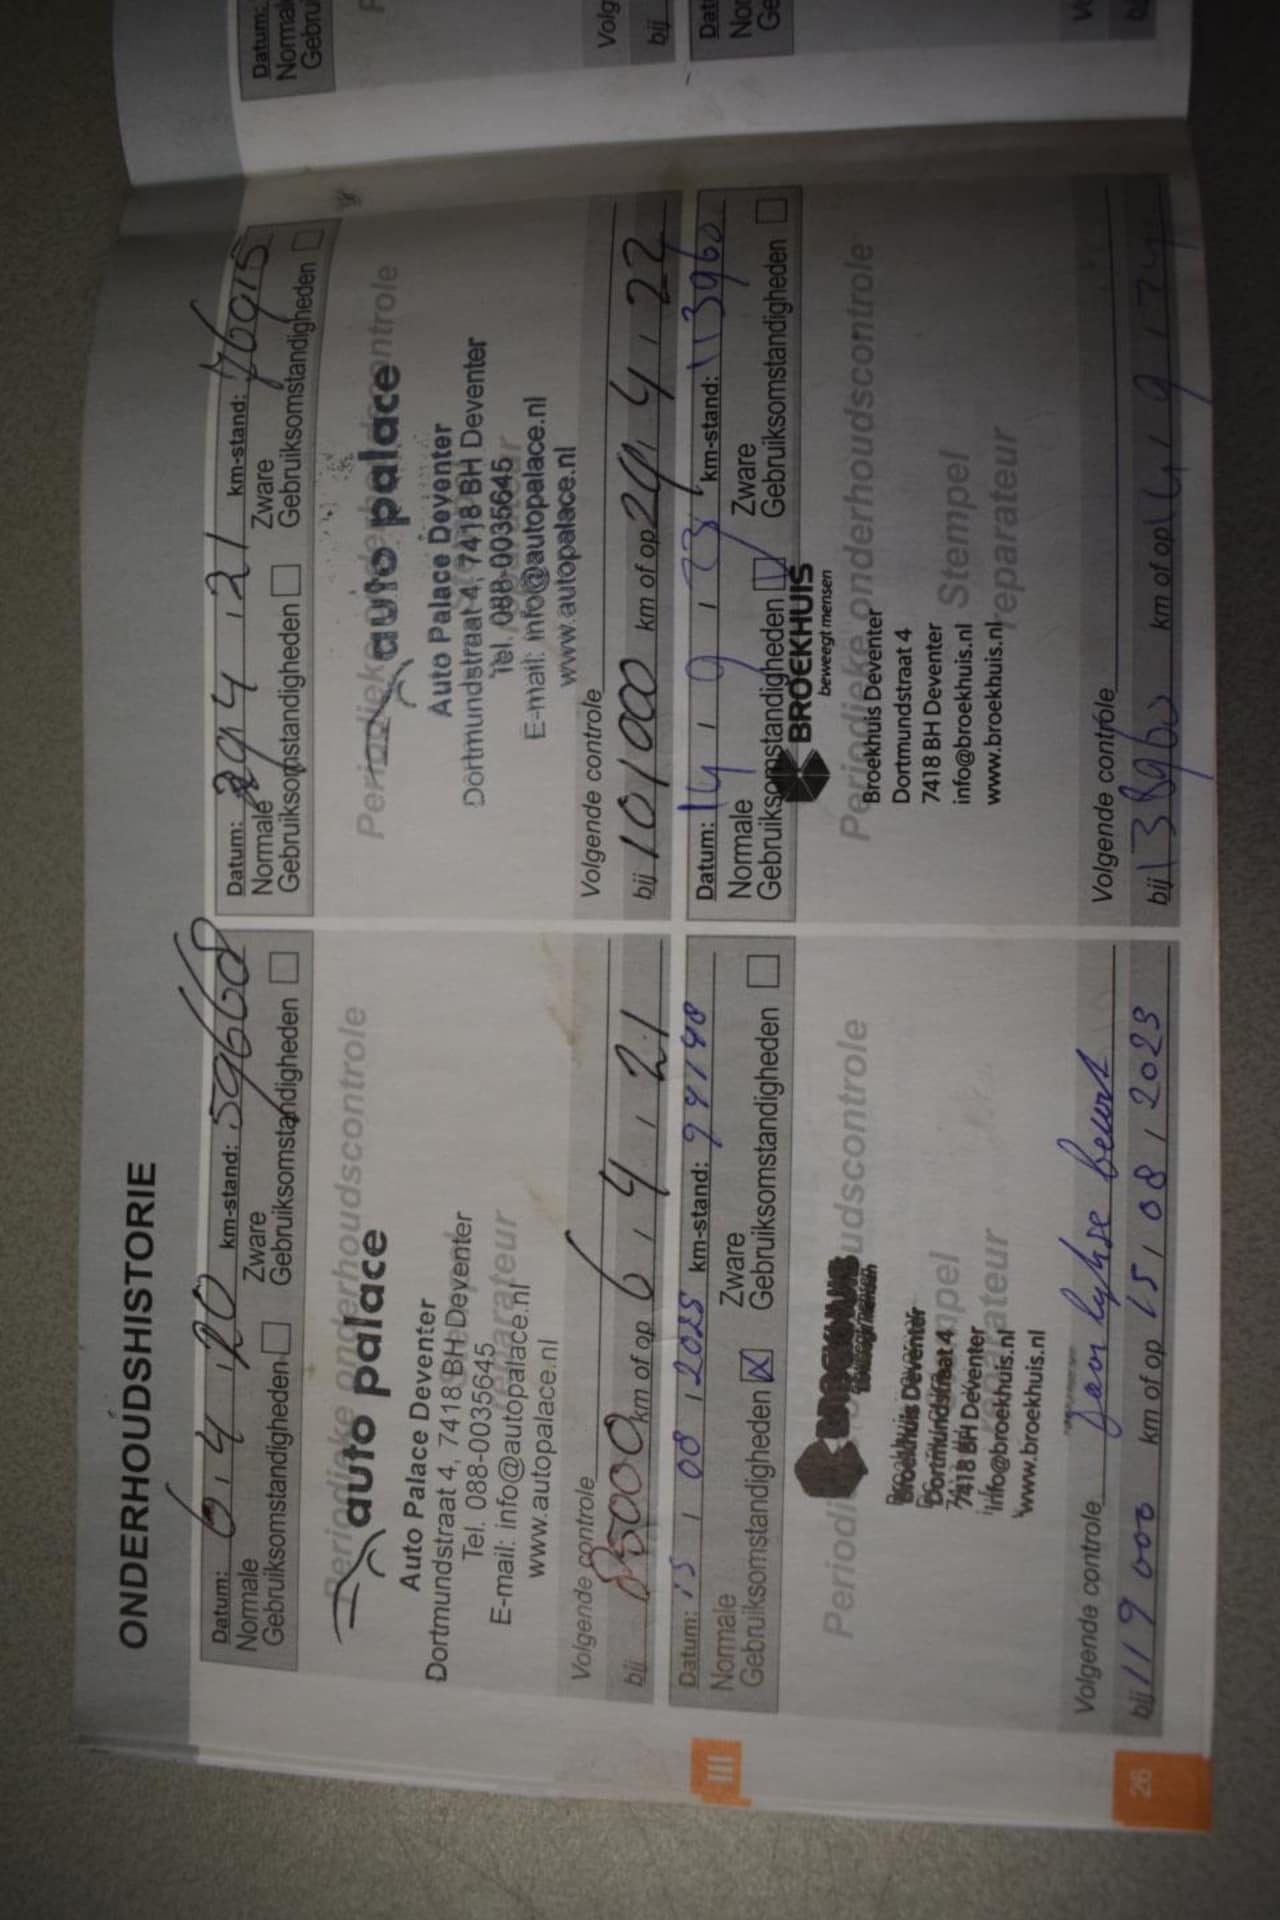 ONDERHOUDSHISTORIE
Datum: 6 , 4 , 20 km-stand: 59668
Normale Zware
Gebruiksomstandigheden Gebruiksomstandigheden
Periodieke onderhoudscontrole
auto palace
Auto Palace Deventer
Dortmundstraat 4, 7418 BH Deventer
Tel. 088-0035645
E-mail: info@autopalace.nl
www.autopalace.nl
Volgende controle
bij 85000 km of op 6 , 4 , 21
Datum: 294 , 21 km-stand: 76915
Normale Zware
Gebruiksomstandigheden Gebruiksomstandigheden
auto palace
Auto Palace Deventer
Dortmundstraat 4, 7418 BH Deventer
Tel. 088-0035645
E-mail: info@autopalace.nl
www.autopalace.nl
Volgende controle
bij 101000 km of op 29 , 4 , 22
Datum: 15 , 08 , 2022 km-stand: 94748
Normale Zware
Gebruiksomstandigheden Gebruiksomstandigheden
BROEKHUIS
Broekhuis Deventer
Dortmundstraat 4
7418 BH Deventer
info@broekhuis.nl
www.broekhuis.nl
Volgende controle Jaarlijkse beurt
bij 119000 km of op 15 , 08 , 2023
Datum: 14 , 9 , 23 km-stand: 113960
Normale Zware
Gebruiksomstandigheden Gebruiksomstandigheden
BROEKHUIS
beweegt mensen
Periodieke onderhoudscontrole
Broekhuis Deventer
Dortmundstraat 4
7418 BH Deventer
Stempel
info@broekhuis.nl
www.broekhuis.nl
reparateur
Volgende controle
bij 138960 km of op 14 , 9 , 24
III
26
Datum: